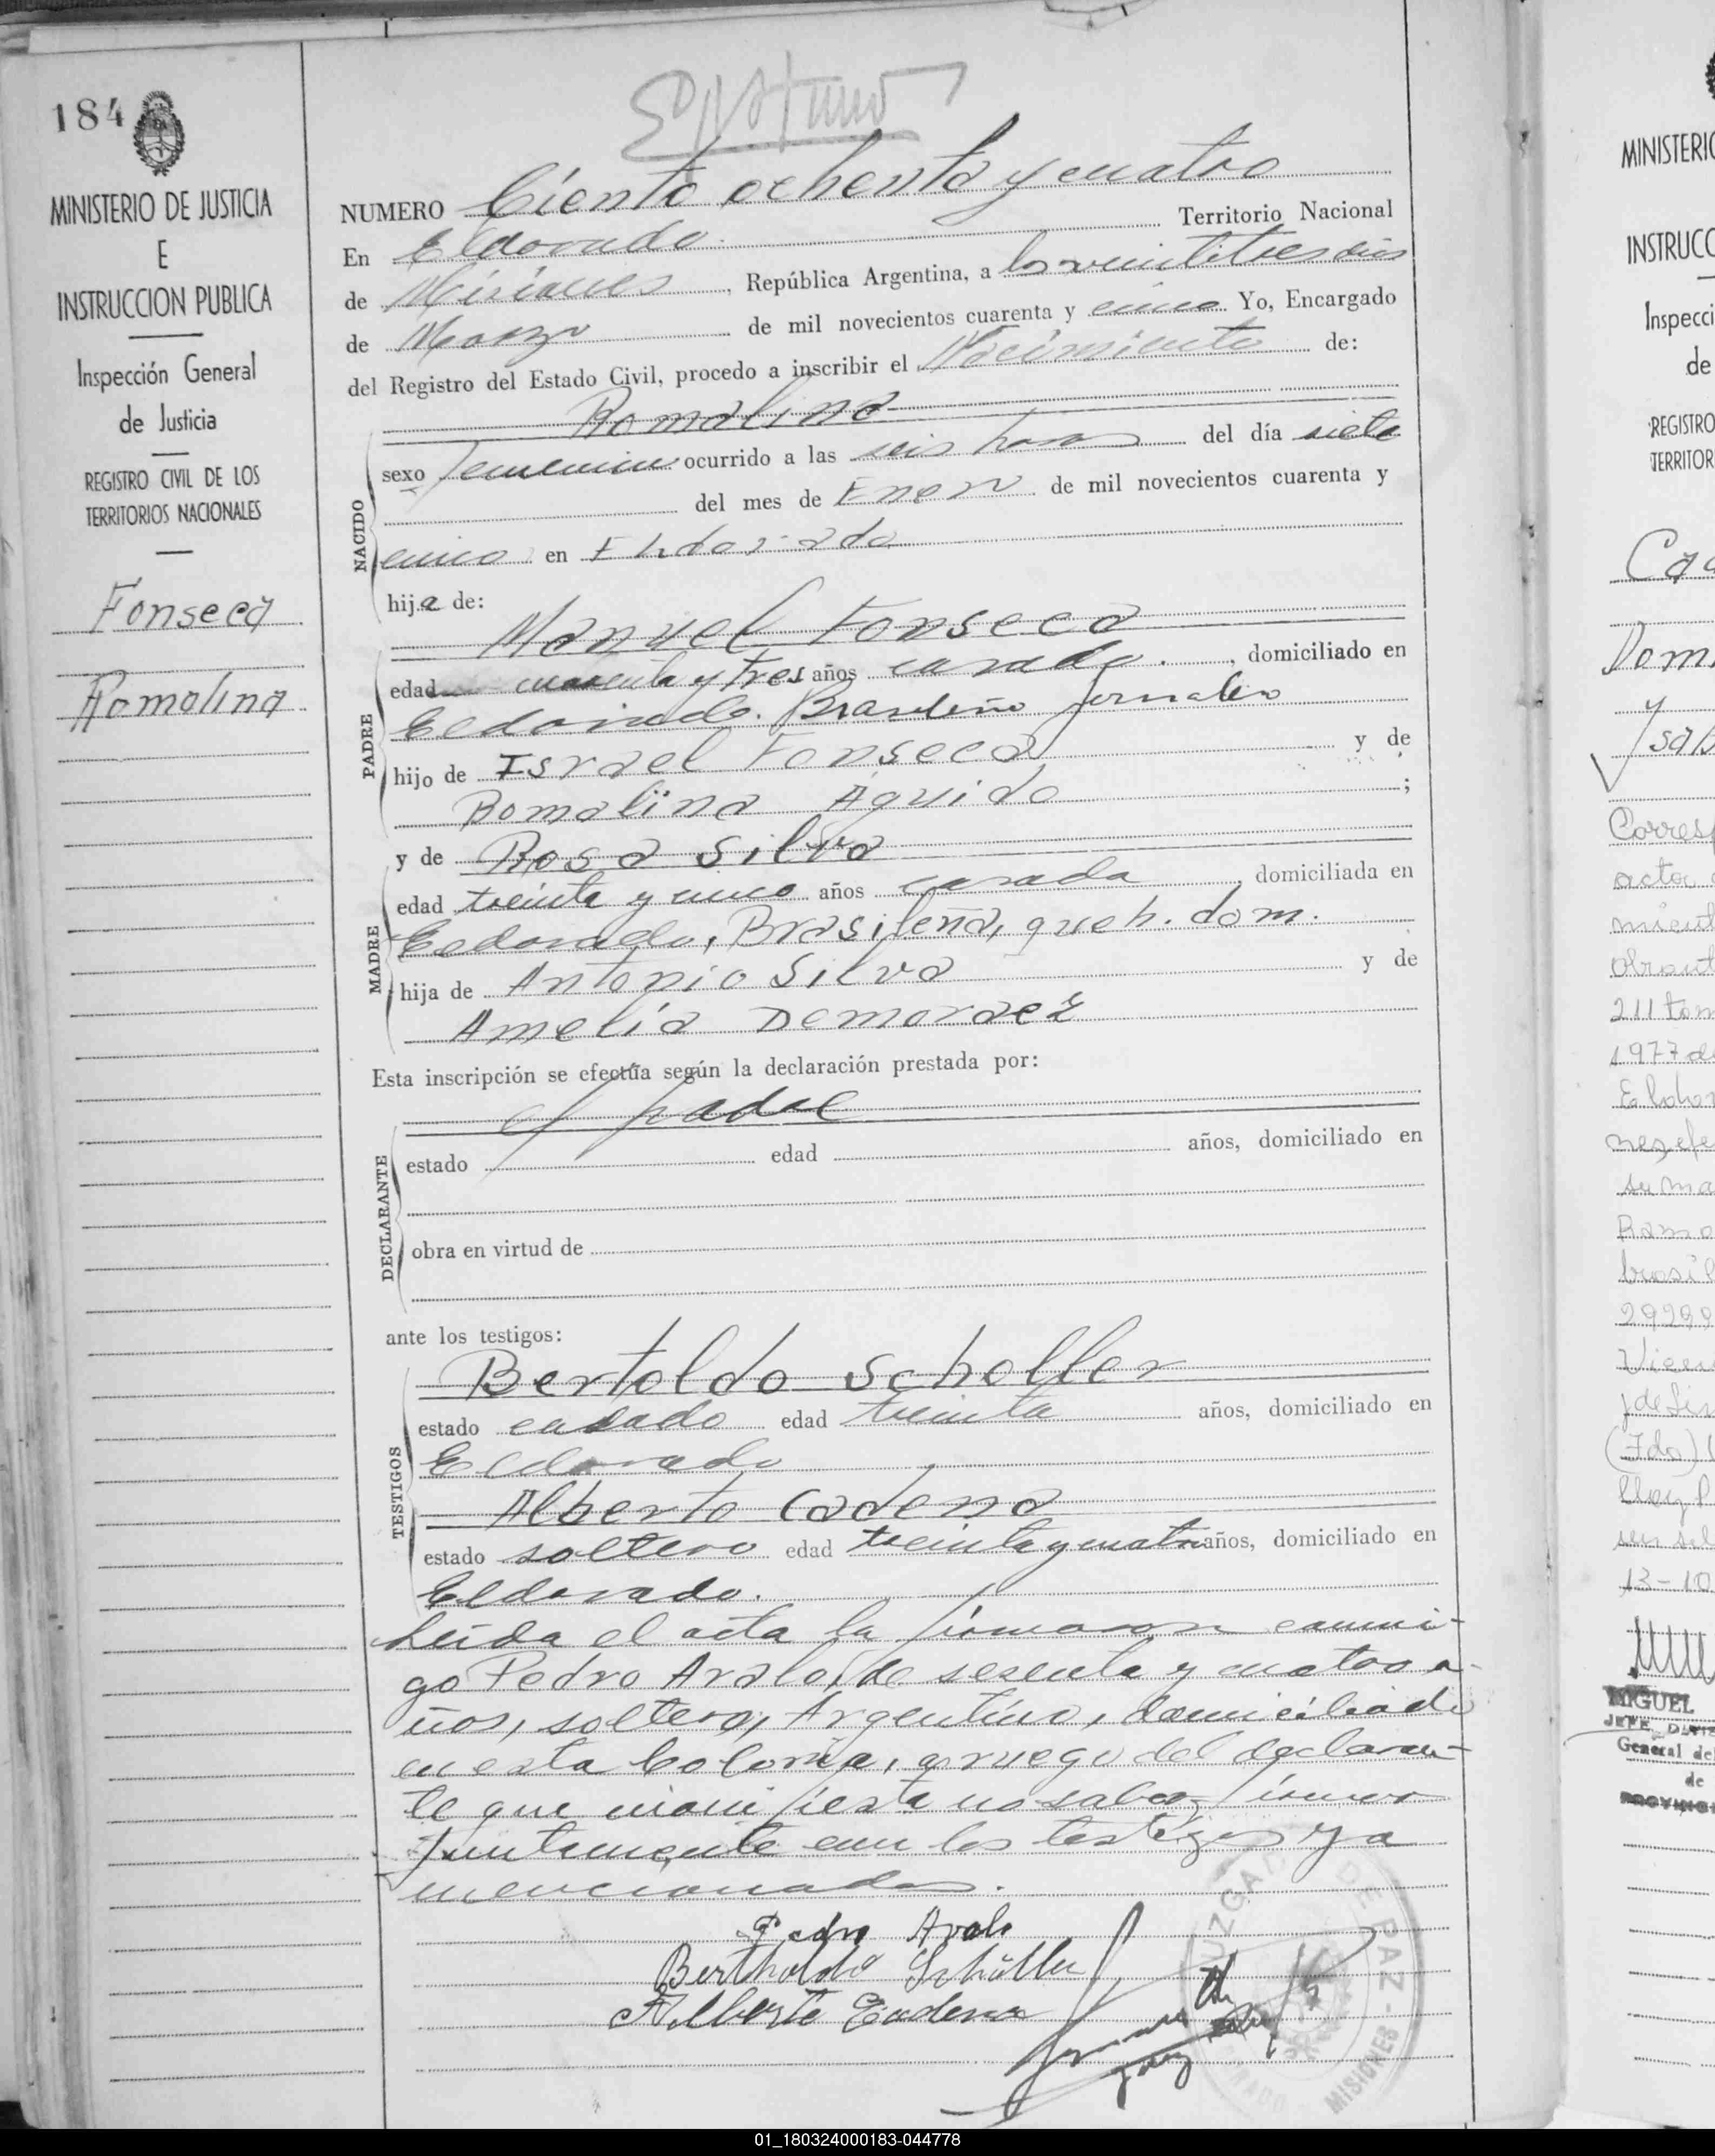 184
MINISTERIO DE JUSTICIA
E
INSTRUCCION PUBLICA
Inspección General
de Justicia
REGISTRO CIVIL DE LOS
TERRITORIOS NACIONALES
Fonseca
Romalina
NUMERO Ciento ochenta y cuatro
En Eldorado. Territorio Nacional
de Misiones, República Argentina, a los veintitres dias
de Marzo de mil novecientos cuarenta y cinco Yo, Encargado
del Registro del Estado Civil, procedo a inscribir el Nacimiento de:
Romalina
NACIDO
sexo femenino ocurrido a las seis horas del día siete
del mes de Enero de mil novecientos cuarenta y
cinco en Eldorado
hija de:
Manuel Fonseca
PADRE
edad cuarenta y tres años casado, domiciliado en
Eldorado. Brasileño jornalero
hijo de Israel Fonseca y de
Romalina Aguido;
y de Rosa Silva
MADRE
edad treinta y cinco años casada, domiciliada en
Eldorado, Brasileña, queh. dom.
hija de Antonio Silva y de
Amelia Demoraez
Esta inscripción se efectúa según la declaración prestada por:
el padre
DECLARANTE
estado edad años, domiciliado en
obra en virtud de
ante los testigos:
Bertoldo Scholler
TESTIGOS
estado casado edad treinta años, domiciliado en
Eldorado
Alberto Cadena
estado soltero edad treinta y cuatro años, domiciliado en
Eldorado.
Leída el acta la firmaron conmi-
go Pedro Avalo, de sesenta y cuatro a-
ños, soltero, Argentino, domiciliado
en esta Colonia, a ruego del declaran-
te que manifiesta no saber firmar
juntamente con los testigos ya
mencionados.
Pedro Avalo
Bertholdo Schüller
Alberto Cadena
JUZGADO DE PAZ - MISIONES
MINISTERIO
INSTRUCC
Inspecci
de
REGISTRO
TERRITOR
Corresp
acta
211 tom
1977 de
su ma
13-10
MIGUEL
General de
de
01_180324000183-044778